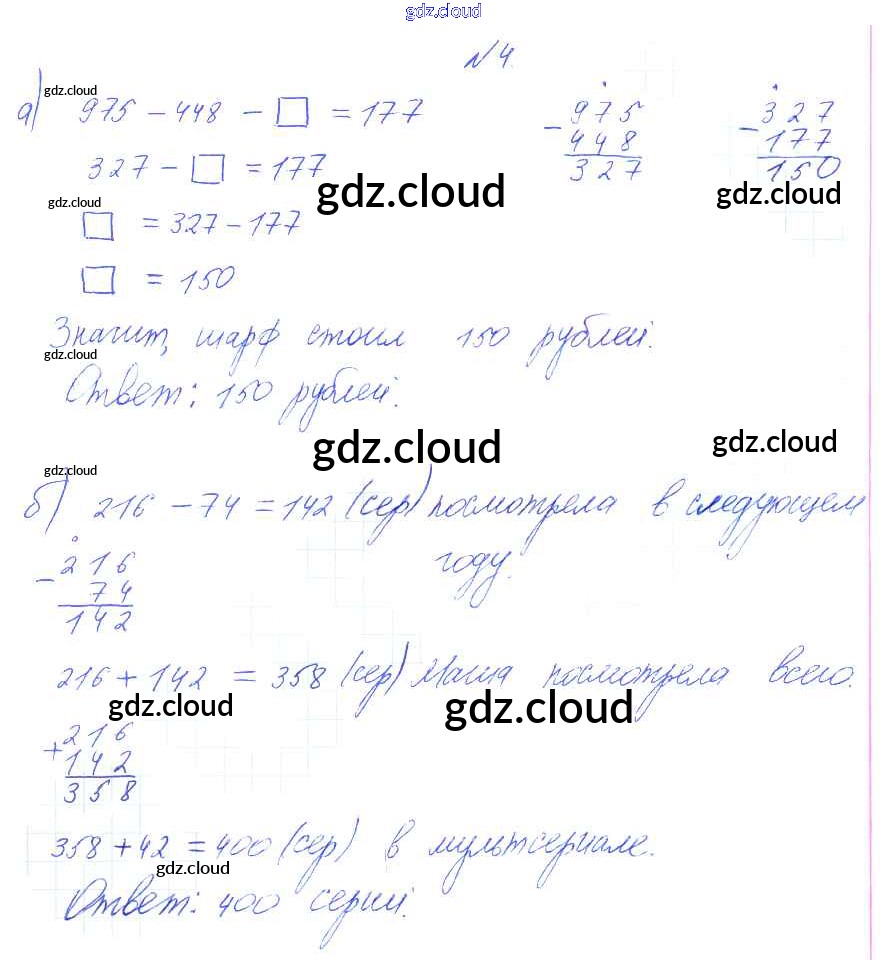 gdz.cloud
№4.
gdz.cloud
а) 975 – 448 – □ = 177
327 – □ = 177
gdz.cloud
□ = 327 – 177
□ = 150
– 975
448
327
– 327
177
150
gdz.cloud
gdz.cloud
Значит, шарф стоил 150 рублей.
gdz.cloud
Ответ: 150 рублей.
gdz.cloud
gdz.cloud
gdz.cloud
б) 216 – 74 = 142 (сер) посмотрела в следующем
году.
– 216
74
142
216 + 142 = 358 (сер) Маша посмотрела всего.
gdz.cloud
gdz.cloud
+ 216
142
358
358 + 42 = 400 (сер) в мультсериале.
gdz.cloud
Ответ: 400 серий.